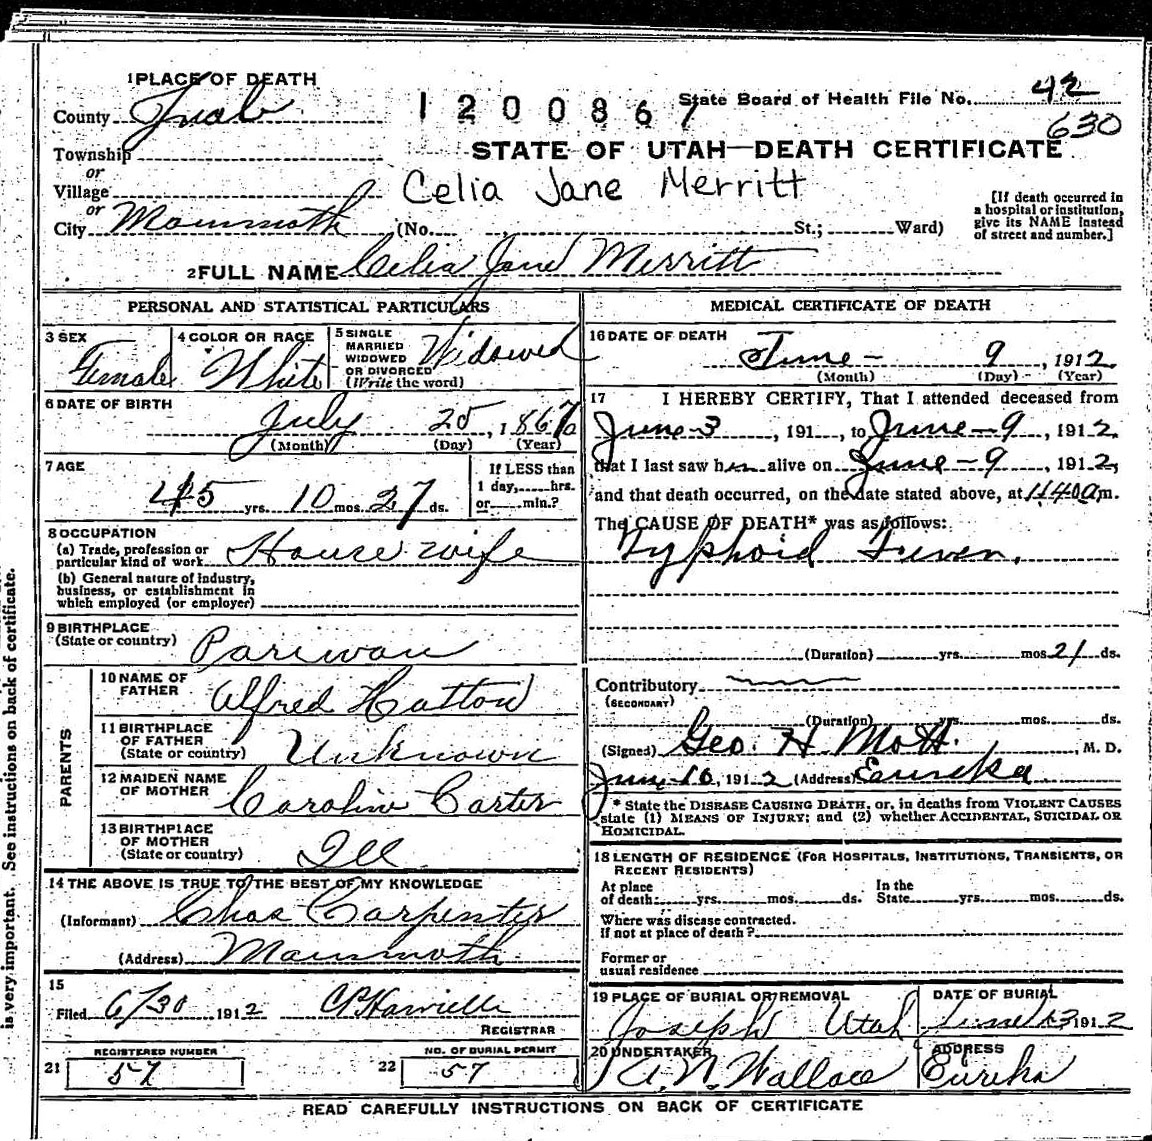 1 PLACE OF DEATH
County Juab
1200867
State Board of Health File No. 42
630
Township
or
STATE OF UTAH—DEATH CERTIFICATE
Village
Celia Jane Merritt
or
City Mammoth (No. St.; Ward)
[If death occurred in a hospital or institution, give its NAME instead of street and number.]
2 FULL NAME Celia Jane Merritt
PERSONAL AND STATISTICAL PARTICULARS
3 SEX Female
4 COLOR OR RACE White
5 SINGLE MARRIED WIDOWED OR DIVORCED (Write the word) Widowed
6 DATE OF BIRTH
July 25, 1867
(Month) (Day) (Year)
7 AGE
45 yrs. 10 mos. 27 ds.
If LESS than 1 day, hrs. or min.?
8 OCCUPATION
(a) Trade, profession or particular kind of work House wife
(b) General nature of industry, business, or establishment in which employed (or employer)
9 BIRTHPLACE
(State or country) Parowan
PARENTS
10 NAME OF FATHER Alfred Hatton
11 BIRTHPLACE OF FATHER (State or country) Unknown
12 MAIDEN NAME OF MOTHER Caroline Carter
13 BIRTHPLACE OF MOTHER (State or country) Ill
14 THE ABOVE IS TRUE TO THE BEST OF MY KNOWLEDGE
(Informant) Chas Carpenter
(Address) Mammoth
15
Filed 6/30 1912
REGISTRAR
REGISTERED NUMBER
21 57
NO. OF BURIAL PERMIT
22 57
MEDICAL CERTIFICATE OF DEATH
16 DATE OF DEATH
June - 9, 1912
(Month) (Day) (Year)
17 I HEREBY CERTIFY, That I attended deceased from
June-3, 191 , to June-9, 1912.
that I last saw her alive on June-9, 1912,
and that death occurred, on the date stated above, at 11 40 a m.
The CAUSE OF DEATH* was as follows:
Typhoid Fever.
(Duration) yrs. mos. 21 ds.
Contributory
(SECONDARY)
(Duration) yrs. mos. ds.
(Signed) Geo. H. Mott. , M. D.
June 10, 1912 (Address) Eureka
* State the DISEASE CAUSING DEATH, or, in deaths from VIOLENT CAUSES state (1) MEANS OF INJURY; and (2) whether ACCIDENTAL, SUICIDAL OR HOMICIDAL.
18 LENGTH OF RESIDENCE (FOR HOSPITALS, INSTITUTIONS, TRANSIENTS, OR RECENT RESIDENTS)
At place of death: yrs. mos. ds. In the State yrs. mos. ds.
Where was disease contracted. If not at place of death?
Former or usual residence
19 PLACE OF BURIAL OR REMOVAL
Joseph Utah
DATE OF BURIAL
June 13 1912
20 UNDERTAKER
A. N. Wallace
ADDRESS
Eureka
READ CAREFULLY INSTRUCTIONS ON BACK OF CERTIFICATE
is very important. See instructions on back of certificate.